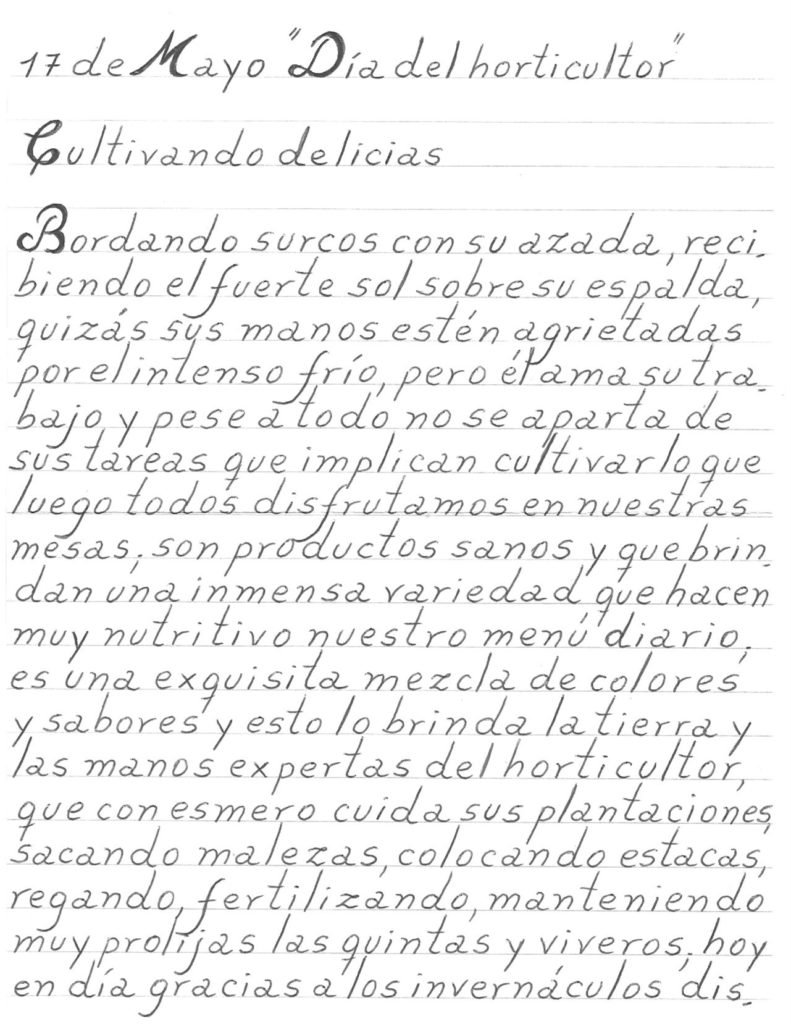 17 de Mayo "Día del horticultor"
Cultivando delicias
Bordando surcos con su azada, reci-
biendo el fuerte sol sobre su espalda,
quizás sus manos estén agrietadas
por el intenso frío, pero él ama su tra-
bajo y pese a todo no se aparta de
sus tareas que implican cultivar lo que
luego todos disfrutamos en nuestras
mesas; son productos sanos y que brin-
dan una inmensa variedad que hacen
muy nutritivo nuestro menú diario;
es una exquisita mezcla de colores
y sabores y esto lo brinda la tierra y
las manos expertas del horticultor,
que con esmero cuida sus plantaciones,
sacando malezas, colocando estacas,
regando, fertilizando, manteniendo
muy prolijas las quintas y viveros; hoy
en día gracias a los invernáculos dis-